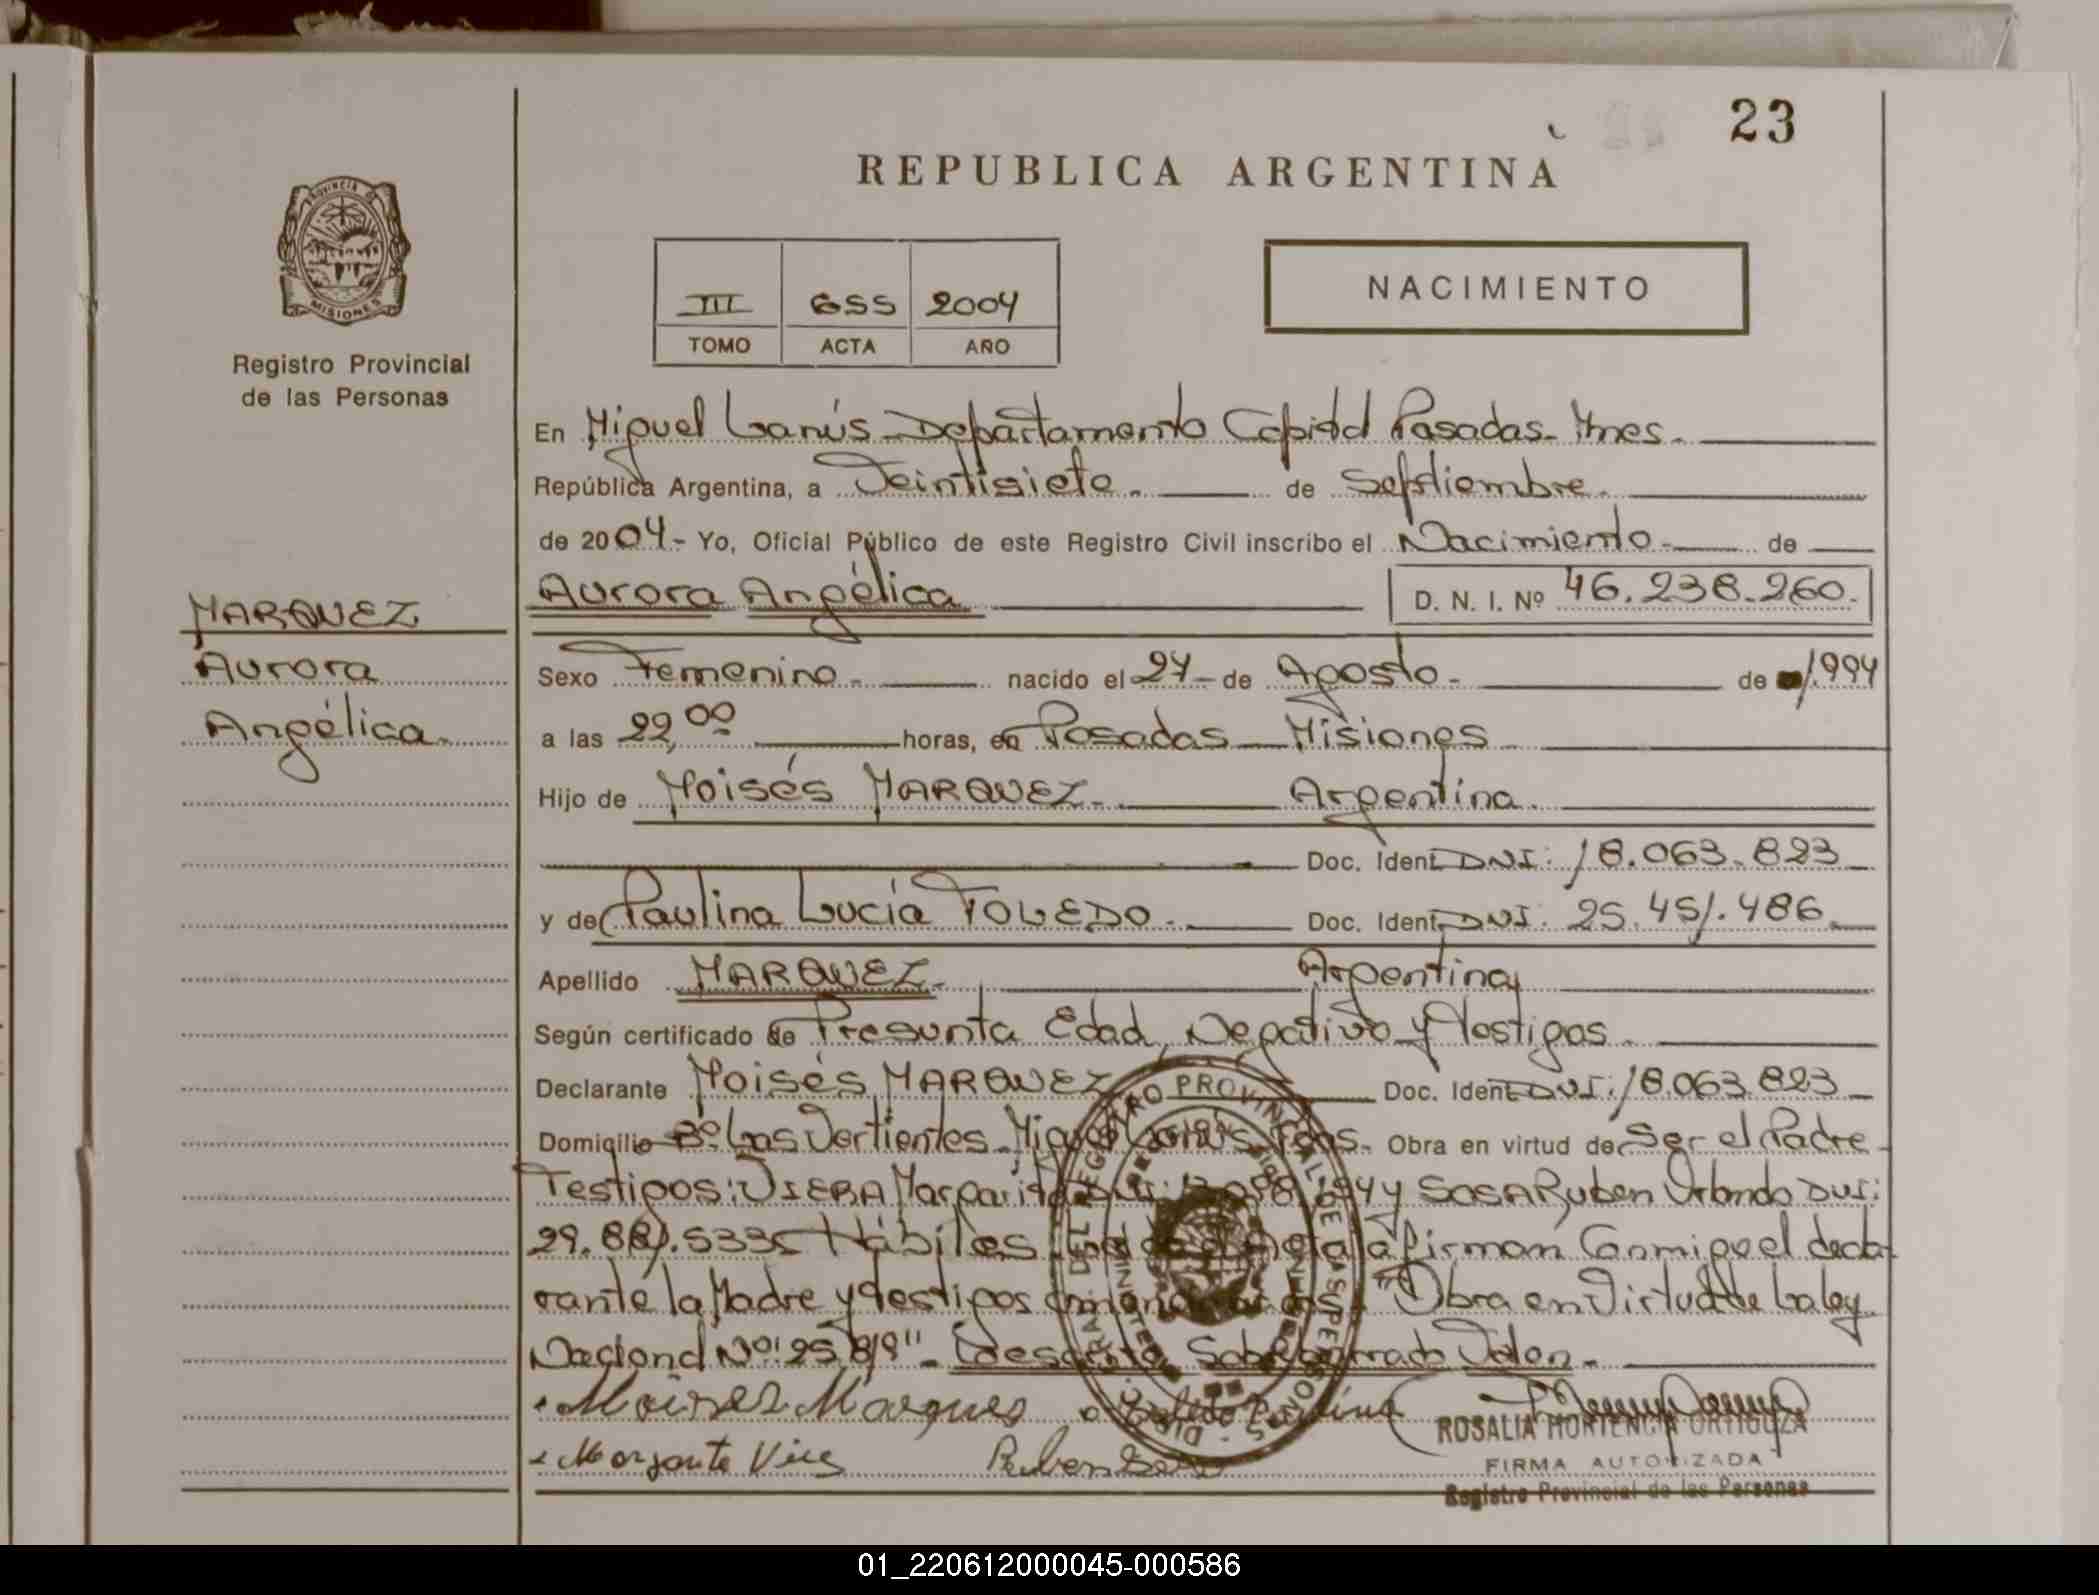 23
REPUBLICA ARGENTINA
PROVINCIA DE MISIONES
Registro Provincial
de las Personas
III 655 2004
TOMO ACTA AÑO
NACIMIENTO
En Miguel Lanús - Departamento Capital Posadas - Mnes.
República Argentina, a Veintisiete. de Septiembre.
de 2004.- Yo, Oficial Público de este Registro Civil inscribo el Nacimiento. de
Aurora Angélica D. N. I. Nº 46.238.260.
MARQUEZ
Aurora
Angélica.
Sexo Femenino. nacido el 27 de Agosto. de 1.994
a las 22,00 horas, en Posadas Misiones
Hijo de Moisés MARQUEZ. Argentina.
Doc. Ident. DNI: 18.063.823
y de Paulina Lucía TOLEDO. Doc. Ident. DNI: 25.451.486.
Apellido MARQUEZ. Argentina
Según certificado de Presunta Edad, Negativo y Testigos.
Declarante Moisés MARQUEZ Doc. Ident. DNI: 18.063.823
Domicilio Bº Las Vertientes - Miguel Lanús - Pdas. Obra en virtud de Ser el Padre
Testigos: VIERA Margarita DNI: y SOSA Ruben Orlando DNI:
29. Hábiles firman Conmigo el decla-
rante la Madre y testigos "Obra en Virtud de la ley
Nacional Nº: 25.819" Sobre borrado Valen.
Moises Marques Toledo Paulina
Margarita Vier Ruben Sosa
ROSALIA HORTENCIA ORTIGOZA
FIRMA AUTORIZADA
Registro Provincial de las Personas
01_220612000045-000586